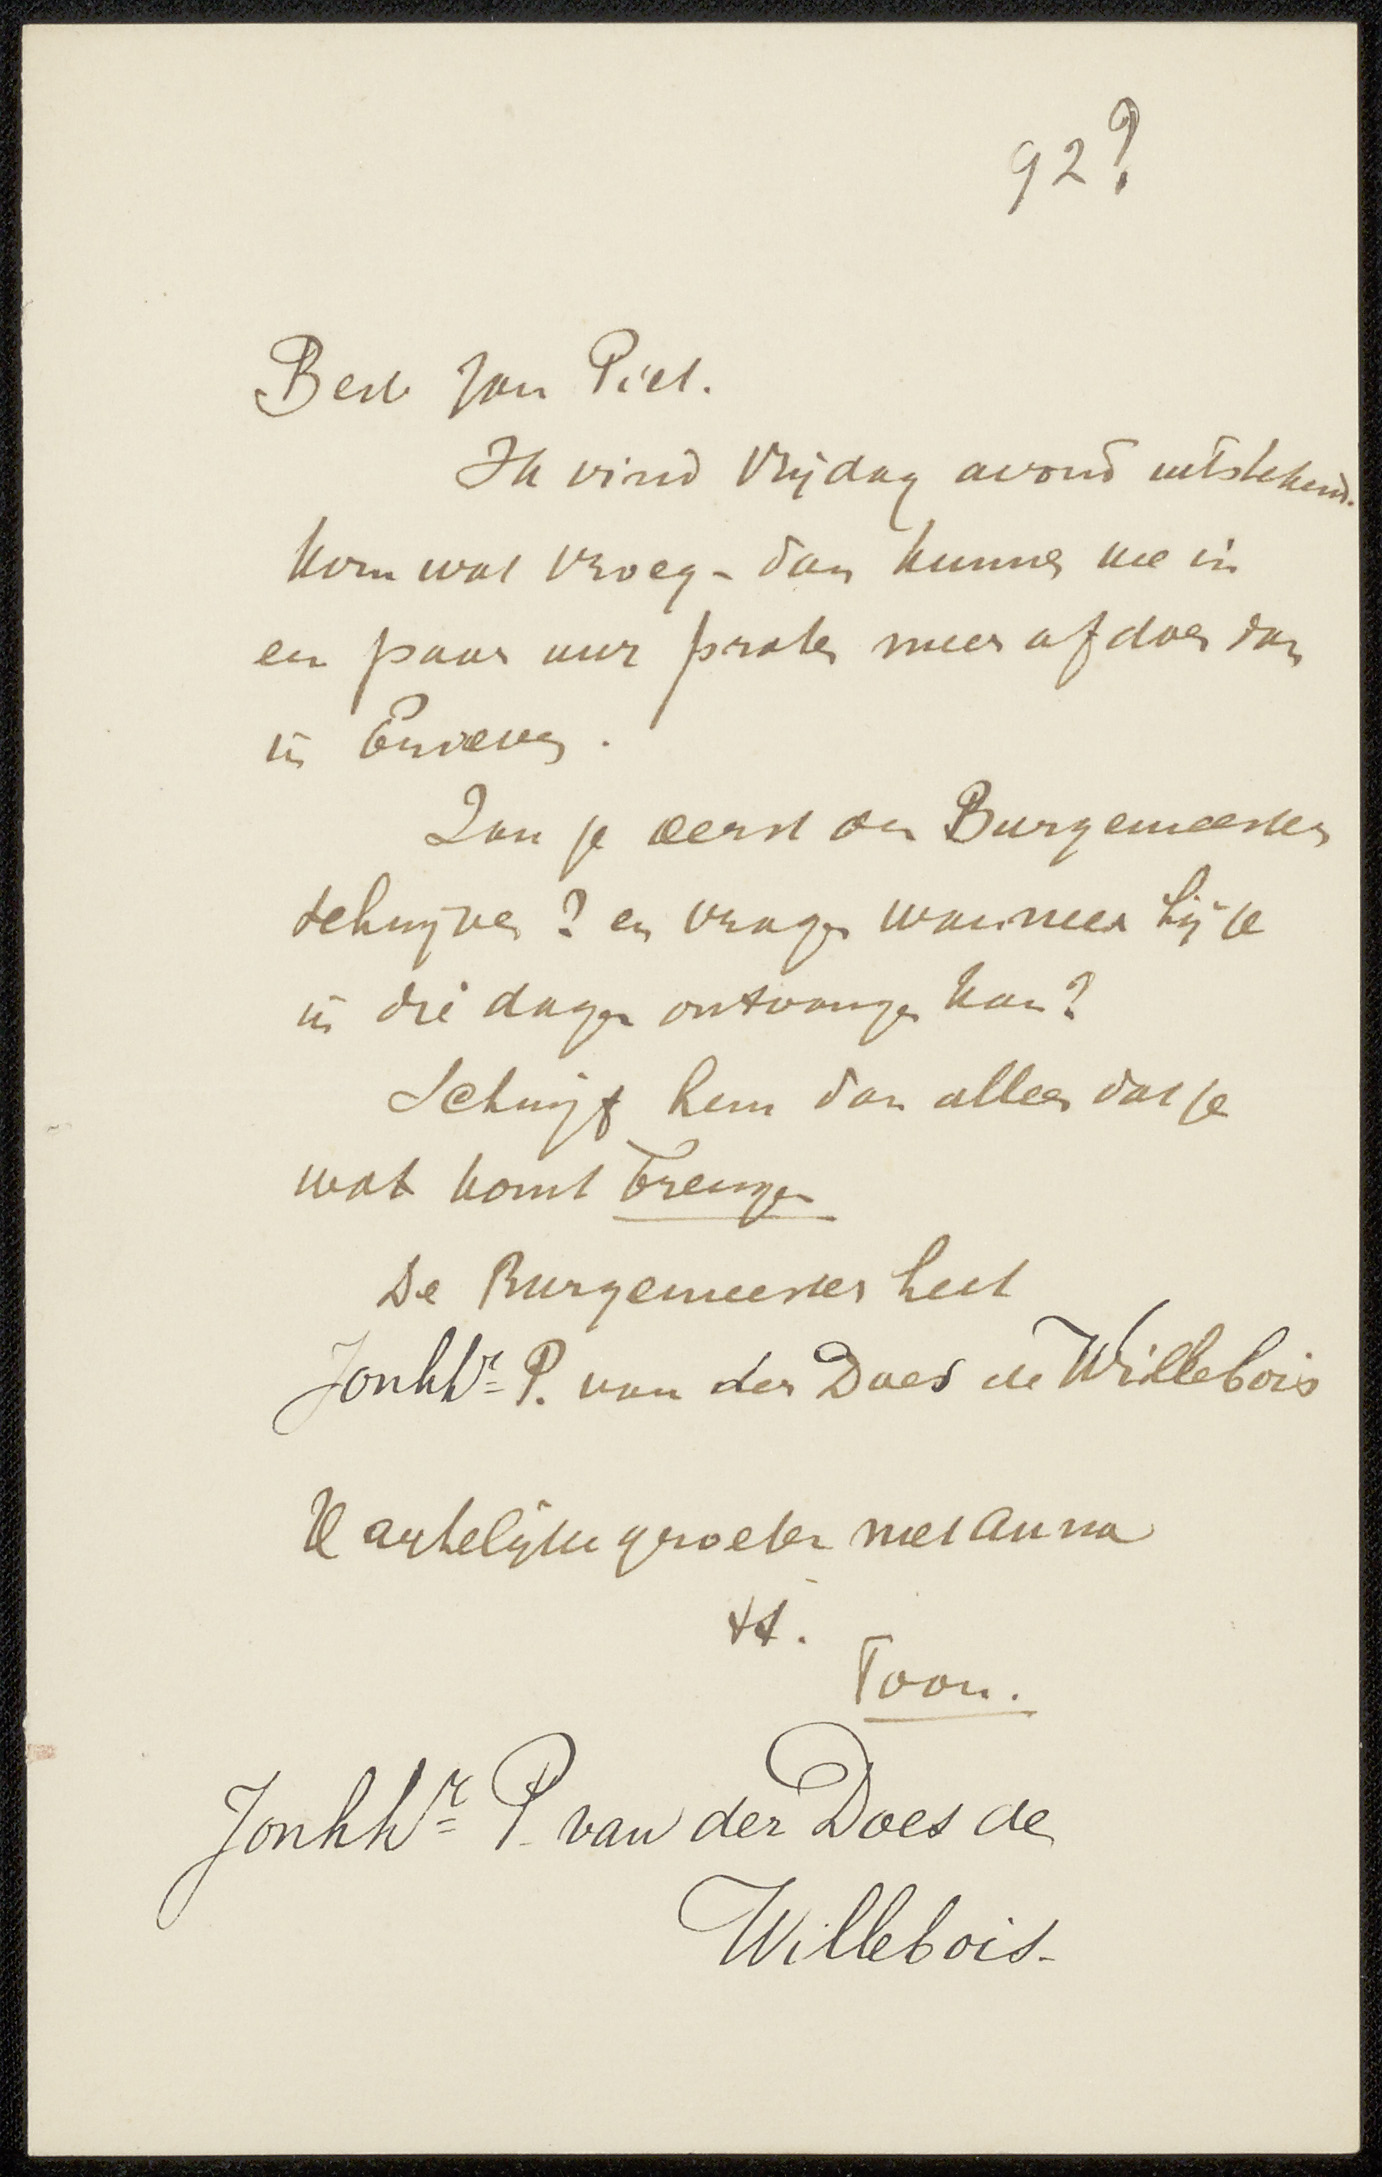 92?
Beste Jan Piet.
Ik vind Vrijdag avond uitstekend.
Kom wat vroeg - dan kunnen we in
een paar uur praten meer afdoen dan
in brieven.
Zou je eerst den Burgemeester
schrijven? en vragen wanneer hij je
in die dagen ontvangen kan?
Schrijf hem dan alleen dat je
wat komt brengen
De Burgemeester heet
Jonkhr. P. van der Does de Willebois
Hartelijke groeten met Anna
tt.
Toon.
Jonkhr. P. van der Does de
Willebois.